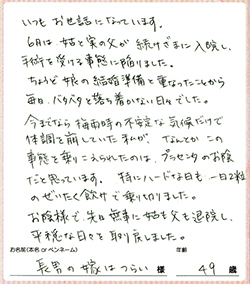 いつも お世話になっています。
6月は 姑と実の父が 続けざまに入院し、
手術を受ける事態に陥りました。
ちょうど 娘の結婚準備と重なったことから
毎日 バタバタと落ち着かない日々でした。
今までなら 梅雨時の不安定な気候だけで
体調を崩していた私が、 なんとか この
事態を乗りこえられたのは、プラセンタのお陰
だと思っています。 特にハードな日も 一日2粒
のぜいたく飲みで乗り切りました。
お陰様で、先日 無事に姑も父も退院し、
平穏な日々を 取り戻しました。
お名前(本名 or ペンネーム)
年齢
長男の嫁はつらい 様
49 歳